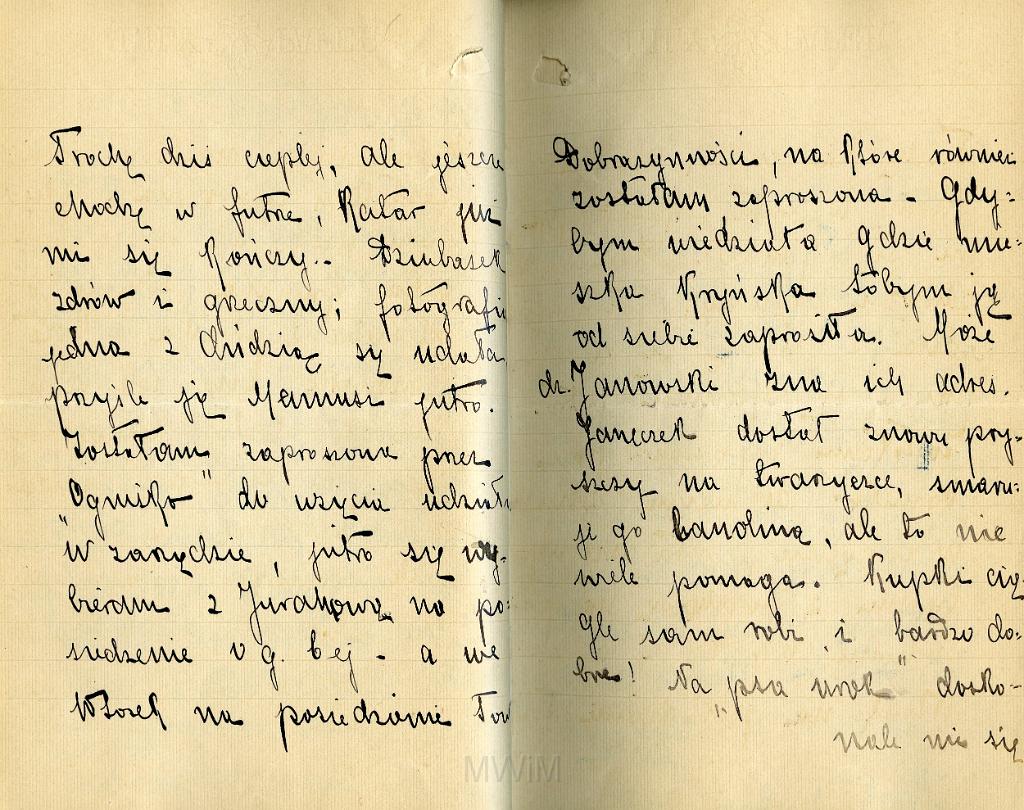 Trochę dziś cieplej, ale jeszcze
chodzę w futrze, Katar już
mi się kończy.. Dziubasek
zdrów i grzeczny; fotografia
jedna z Ciudzią się udała
przyślę ją Mamusi jutro.
Zostałam zaproszona przez
"Ognisko" do wzięcia udziału
w zarządzie, jutro się wy-
bieram z Jurakową na po:
siedzenie o g. 6 ej - a we
Wtorek na posiedzenie Tow
Dobroczynności, na które również
zostałam zaproszona - Gdy:
bym wiedziała gdzie mie:
szka Kryńska tobym ją
od siebie zaprosiła. Może
dr. Janowski zna ich adres.
Janeczek dostał znowu pry:
szczy na twarzyczce, smaru:
ję go Lanoliną, ale to nie
wiele pomaga. Kupki cią
gle sam robi i bardzo do:
bre! Na "psa urok" dosko-
nale mi się
MWiM